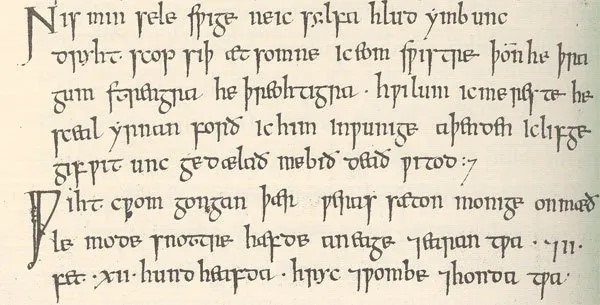 Nis min sele sƿige ne ic sylfa hlud ymb unc
dryht· scop siþ æt somne ic eom sƿiftre þon̄ he þra
gum strengra he þreohtigra · hƿilum ic me reste · he
sceal yrnan forð ic him inƿunige aþenden ic lifge
gif ƿit unc gedælað me bið deað ƿitod :⁊
Ƿiht cƿom gongan þær ƿeras sæton monige on mæð
le mode snottre hæfde an eage ⁊earan tƿa · ⁊II·
fet · XII · hund heafda · hryc ⁊ƿombe ⁊honda tƿa·